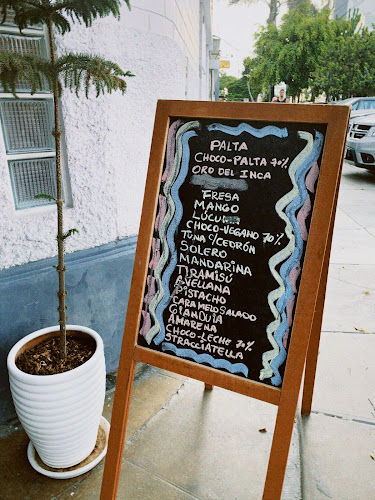 PALTA
CHOCO-PALTA 70%
ORO DEL INCA
FRESA
MANGO
LÚCUMA
CHOCO-VEGANO 70%
TUNA C/CEDRÓN
SOLERO
MANDARINA
TIRAMISÚ
AVELLANA
PISTACHO
CARAMELO SALADO
GIANDUIA
AMARENA
CHOCO-LECHE 70%
STRACCIATELLA